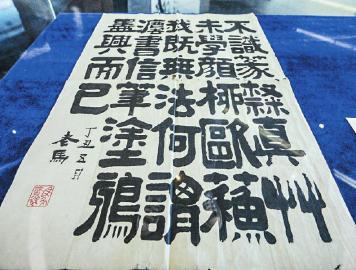 不識篆隸真艸
未學顏柳歐蘇
我既無法何謂
灋書信筆塗鴉
盡興而已
丁丑五月
老馬